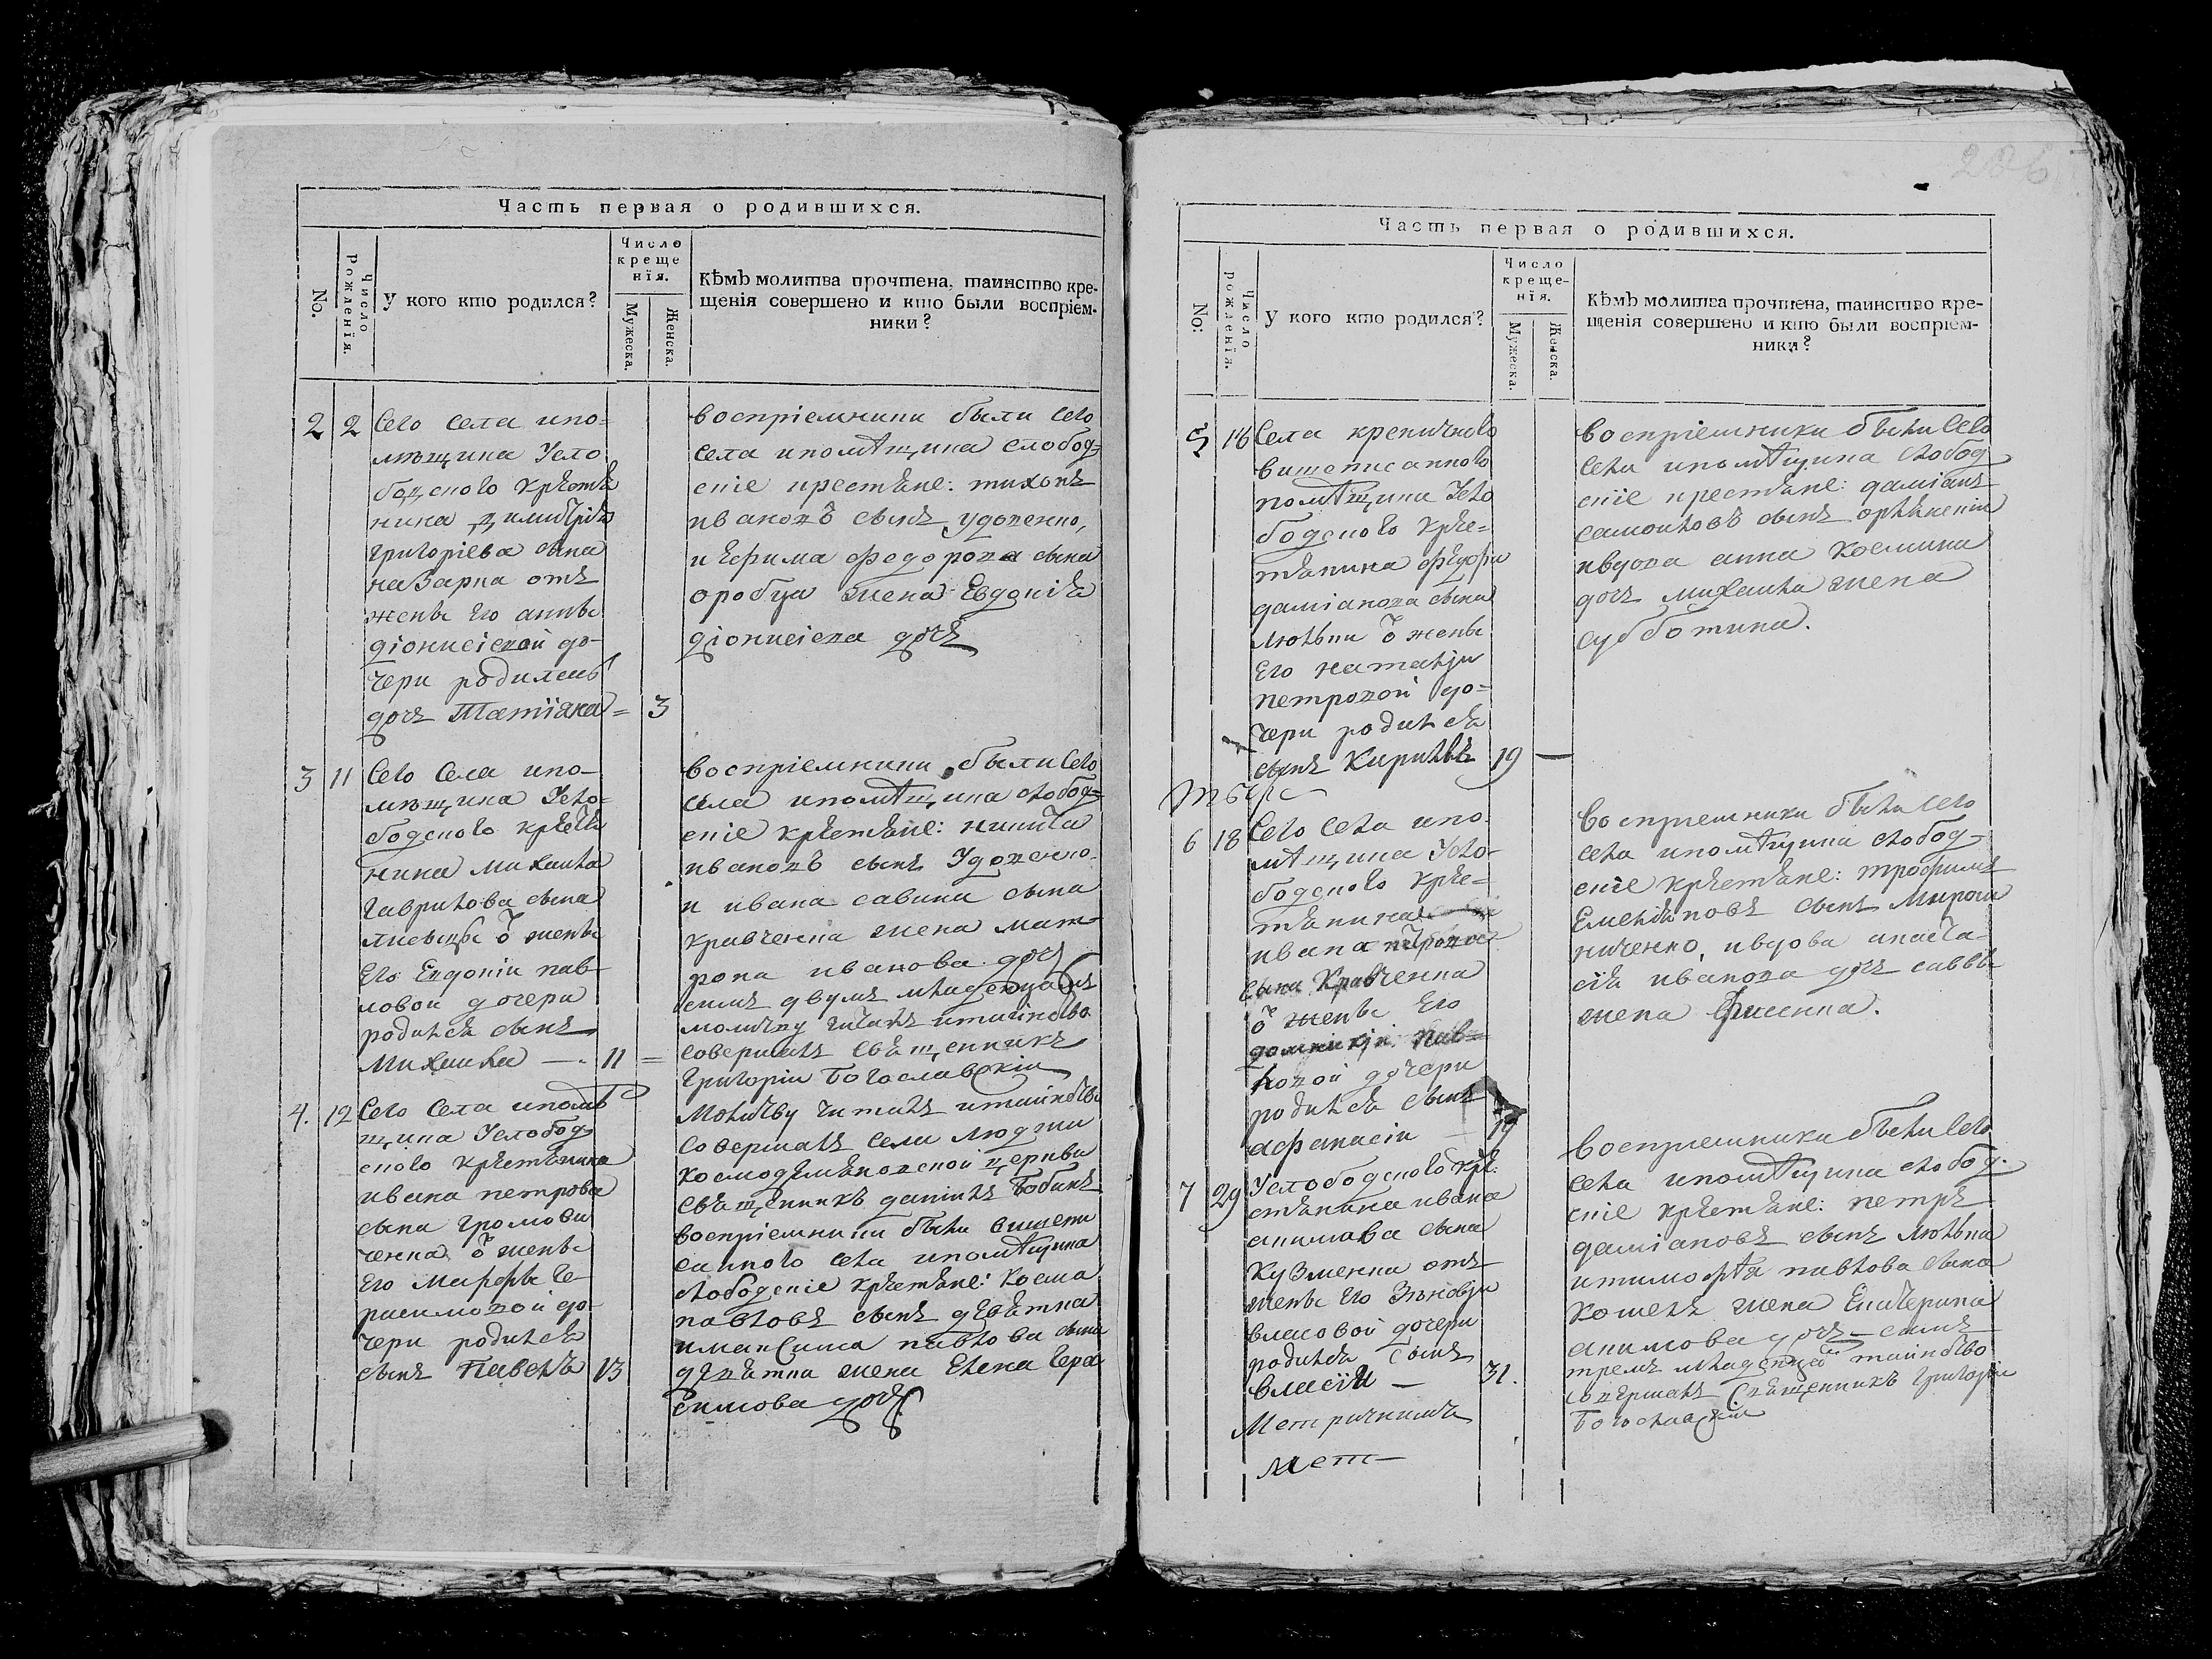 Часть первая о родившихся.
No.
Число рожденїя.
У кого кто родился?
Число крещенїя.
Мужеска.
Женска.
Кѣмъ молитва прочтена, таинство кре-
щенія совершено и кто были воспріем-
ники?
2 2 Сего села ипо-
мѣщика Усло
бодского крестя
нина димитрія
григоріева сына
назарка отъ
жены его анны
діонисіевой до-
чери родилась
дочь Татіяна = 3
воспріемники были сего
села ипомѣщика слобод-
скіе крестяне: тихонъ
ивановъ сынъ удовенко,
и ефима федорова сына
оробца жена Евдокія
діонисіева дочь
3 11 Сего села ипо-
мѣщика Усло-
бодского крестя
нина михаила
гаврилова сына
ѿ жены
его Евдокіи пав-
ловой дочери
родился сынъ
Михаила — 11 =
воспріемники были сего
села ипомѣщика слобод-
скіе крестяне: никита
ивановъ сынъ Удовенко
и ивана савина сына
кравченка жена мат-
рона иванова дочь
симъ двумъ младенцамъ
молитву читалъ итаинство
совершалъ священникъ
григоріи Богославскіи
4. 12 Сего села ипомѣ
щика Услобод
ского крестянина
ивана петрова
сына громови
ченка ѿ жены
его Марфы ге-
расимовой до-
чери родился
сынъ Павелъ 13
Молитву читалъ итаинство
совершалъ села Люджи
космодемяновской церкви
священникъ даніилъ Бобинъ
воспріемники были вишепи
санного села ипомѣщика
слободскіе крестяне: косма
павловъ сынъ девятка
имаксима павлова сына
девятка жена Елена гера
симова дочь
206
Часть первая о родившихся.
No:
Число рожденїя.
У кого кто родился?
Число креще-
нїя.
Мужеска.
Женска.
Кѣмъ молитва прочтена, таинство кре-
щенія совершено и кто были воспріем-
ники?
5 18 Села крепичного
вишеписанного
помѣщика Усло
бодского кре-
стянина
даміанова сына
люлька ѿ жены
его наталіи
петровой до-
чери родился
сынъ Кирилъ 19 —
воспріемники были сего
села ипомѣщика слобод
скіе крестяне: даміанъ
самоиловъ сынъ
ивдова анна космина
дочь михаила жена
субботина.
6 18 Сего села ипо
мѣщика Усло-
бодского кре-
стянина
ивана петрова
сына Кравченка
ѿ жены его
домникіи пав-
ловой дочери
родился сынъ
афанасіи — 19
воспріемники были сего
села ипомѣщика слобод-
скіе крестяне: трофимъ
Емеліяновъ сынъ Мирош
ниченко, ивдова анаста-
сія иванова дочь саввы
жена
7 29 Услободского кре
стянина ивана
акимова сына
кузменка отъ
жены его Зѣновіи
власовой дочери
родился сынъ
власіи — 31.
воспріемники были сего
села ипомѣщика слобод-
скіе крестяне: петръ
даміановъ сынъ люлька
итимофѣя павлова сына
кошеля жена Екатерина
акимова дочь симъ
тремъ младенцамъ таинство
совершалъ Священникъ григоріи
Богославскіи
мет—